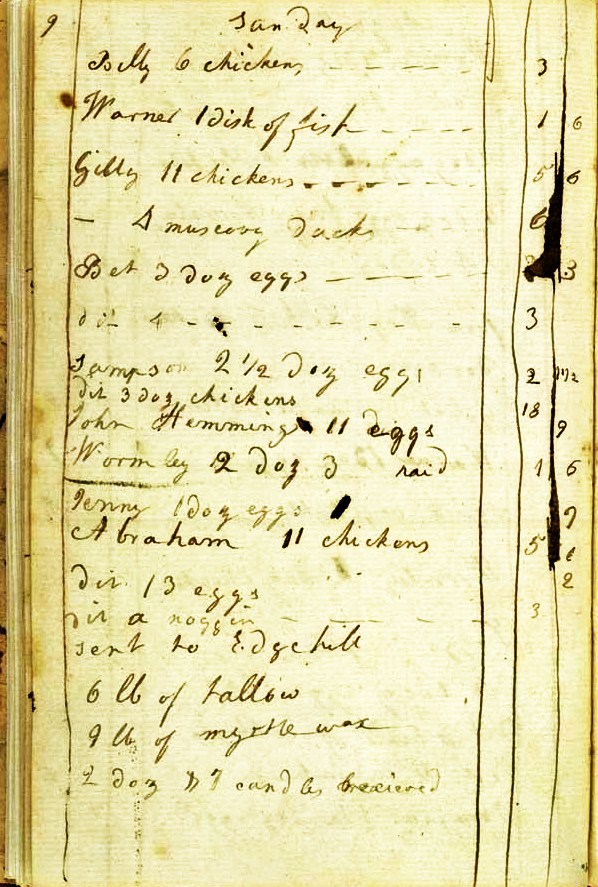 9 Sunday
Billy 6 chickens 3
Warner 1 dish of fish 1 6
Gilly 11 chickens 5 6
— 4 muscovy ducks 6
Bet 3 doz eggs 3
dit 4 3
Sampson 2 1/2 doz eggs 2
dit 3 doz chickens 18
John Hemmings 11 eggs 9
Wormley 2 doz 3 1 6
Jenny 1 doz eggs 9
Abraham 11 chickens 5 6
dit 13 eggs 2
dit a noggin 3
sent to Edgehill
6 lb of tallow
9 lb of myrtle wax
2 doz 7 candles